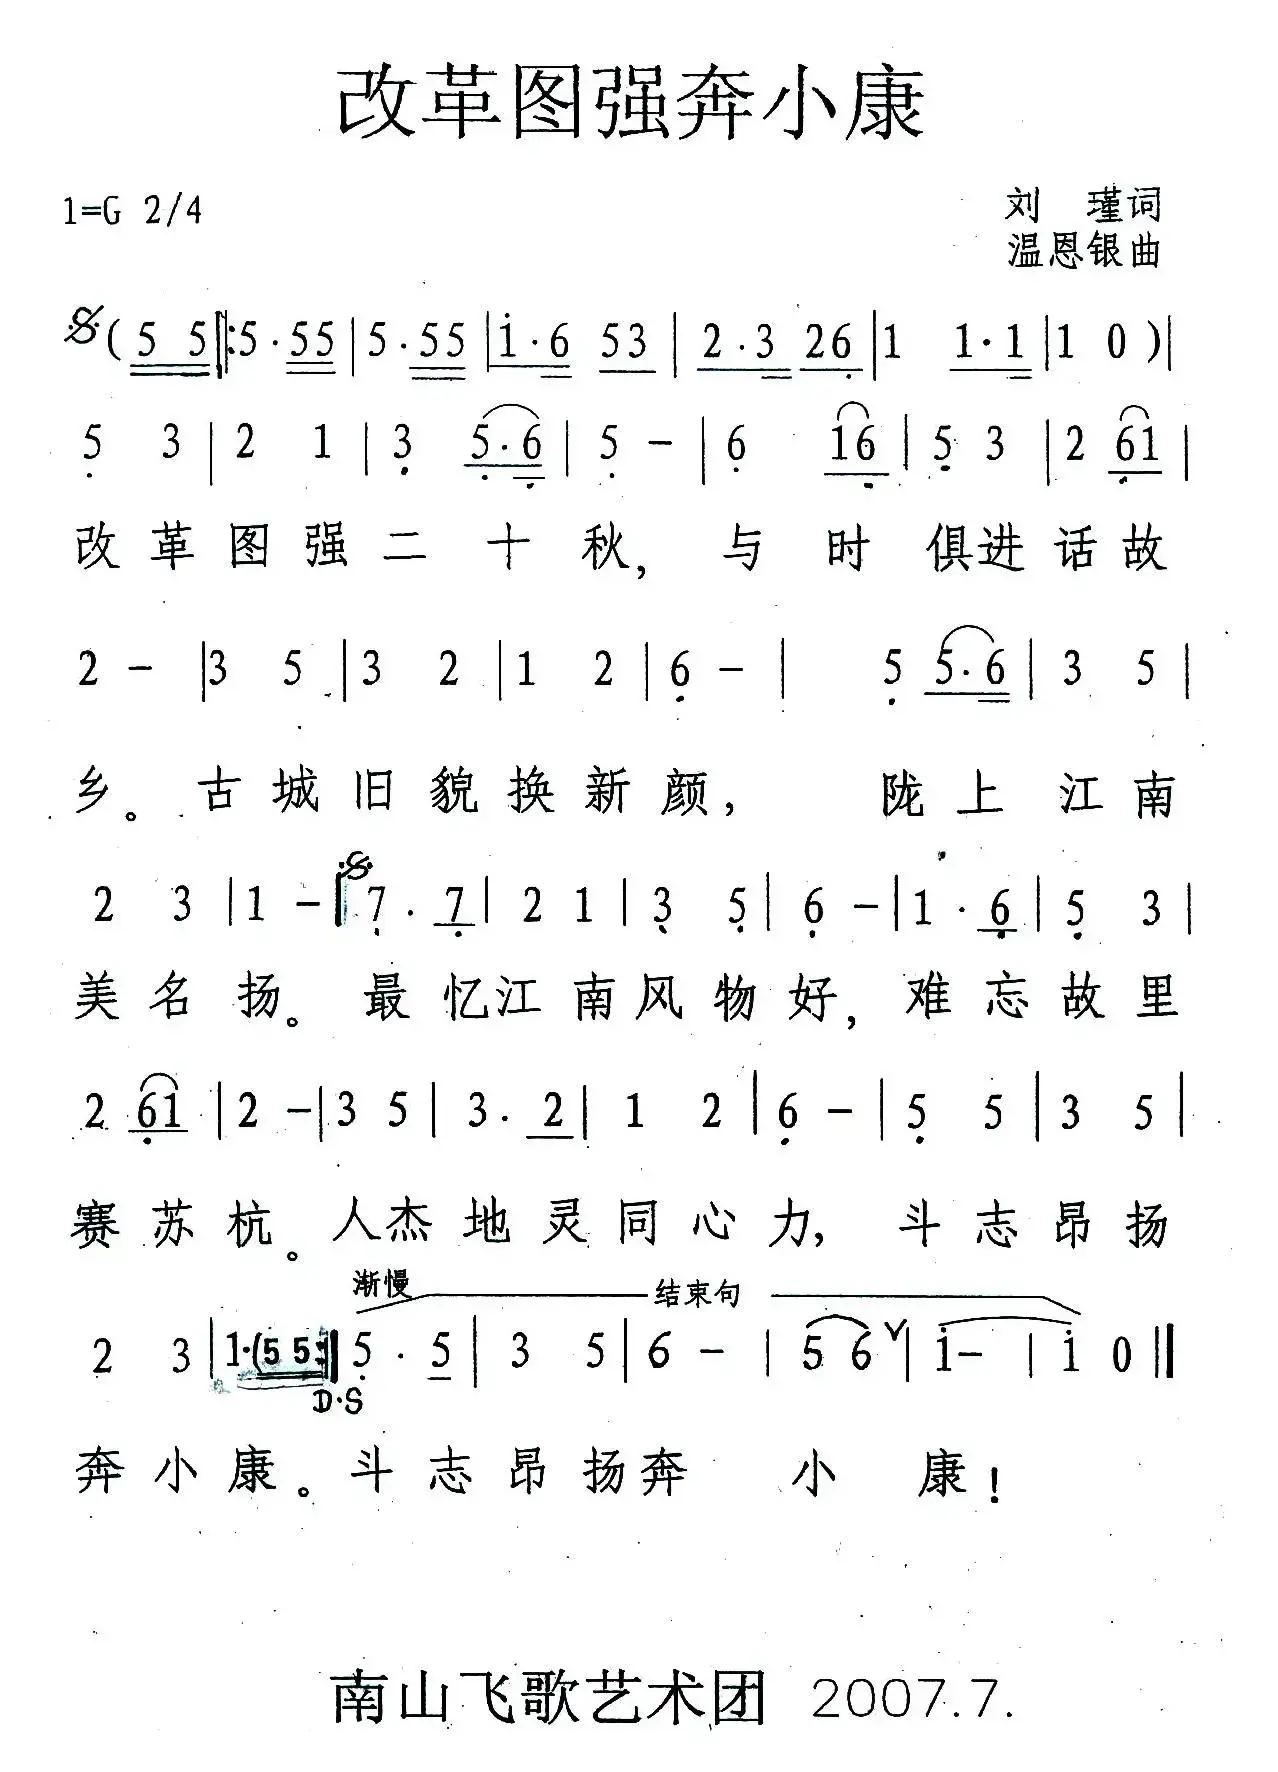 改革图强奔小康
1=G 2/4
刘 瑾词
温恩银曲
( 5 5 ‖: 5 · 55 | 5 · 55 | 1 · 6 53 | 2 · 3 26 | 1 1 · 1 | 1 0 ) |
5 3 | 2 1 | 3 5 · 6 | 5 - | 6 16 | 5 3 | 2 61 |
改 革 图 强 二 十 秋, 与 时 俱进 话 故
2 - | 3 5 | 3 2 | 1 2 | 6 - | 5 5 · 6 | 3 5 |
乡。 古 城 旧 貌 换 新 颜, 陇 上 江 南
2 3 | 1 - | 7 · 7 | 2 1 | 3 5 | 6 - | 1 · 6 | 5 3 |
美 名 扬。 最 忆江 南 风 物 好, 难 忘 故 里
2 61 | 2 - | 3 5 | 3 · 2 | 1 2 | 6 - | 5 5 | 3 5 |
赛 苏 杭。 人杰 地 灵 同 心 力, 斗 志 昂 扬
渐慢 结束句
2 3 | 1 · (5 5 :‖ 5 · 5 | 3 5 | 6 - | 5 6 ∨ | 1 - | 1 0 ‖
D·S
奔 小 康。 斗 志 昂 扬奔 小 康!
南山飞歌艺术团 2007.7.